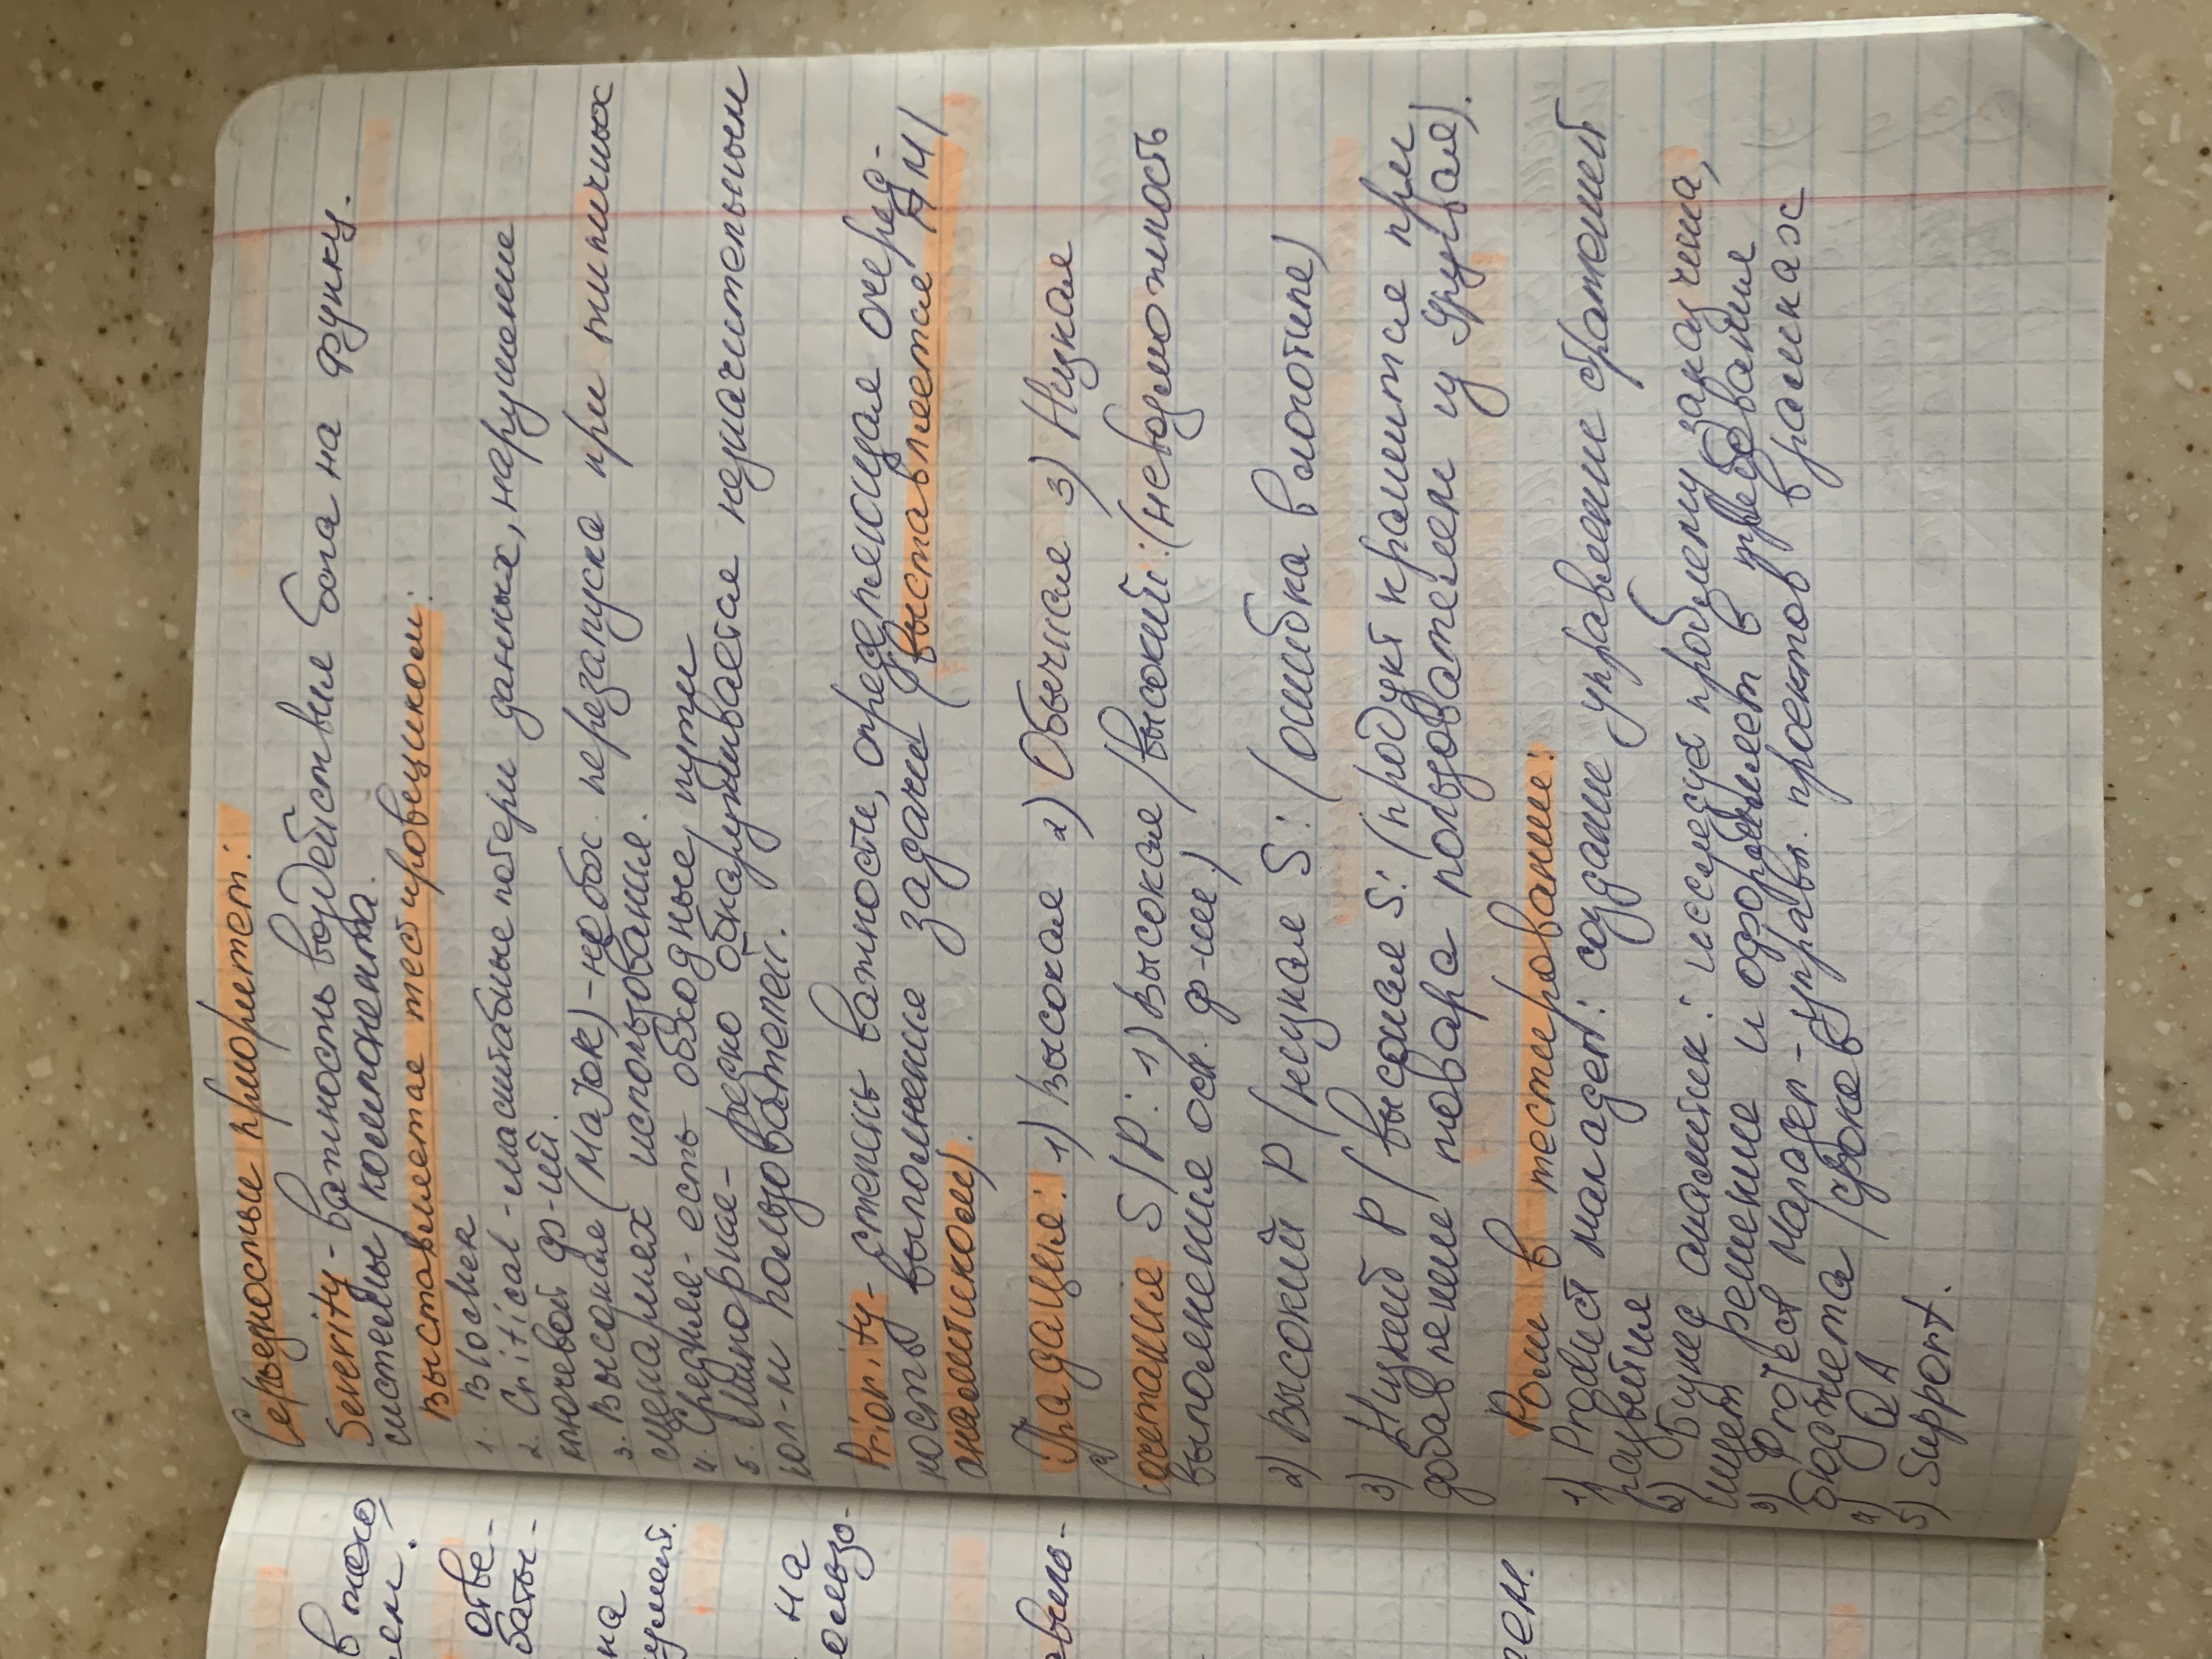 в того,
ем!
отве-
баты-
на
умент.
на
ользо-
авило-
ем.
Серьезность и приоритет:
Severity - важность воздействия бага на функц.
системы / компонента.
Выставляется тестировщиком:
1. Blocker
2. Critical - масштабные потери данных, нарушение
ключевой ф-ий.
3. Высокая (MaJoR) - необх. перезапуска при типичных
сценариях использования.
4. Средняя - есть обходные, пути
5. Минорная - редко обнаруживается незначительным
кол-м пользователей.
Priority - степень важности, определяющая очеред-
ность выполнения задачи (выставляется ПМ/
аналитиком).
Градация: 1) Высокая 2) Обычная 3) Низкая
Сочетания S/P: 1) Высокая / высокий: (невозможность
выполнения осн. ф-ии.)
2) Высокий P / низкая S: (ошибка в логотипе)
3) Низкий P / высокая S: (продукт крашится при
добавлении товара пользователем из Уругвая).
Роли в тестировании:
1) Product манадеr: создание управление стратегией
развития
2) Бизнес аналитик: исследуе проблему заказчика,
ищет решение и оформляет в требования
3) Project Манадеr - управл. проектов в рамках
бюджета / сроков
4) QA
5) Support.